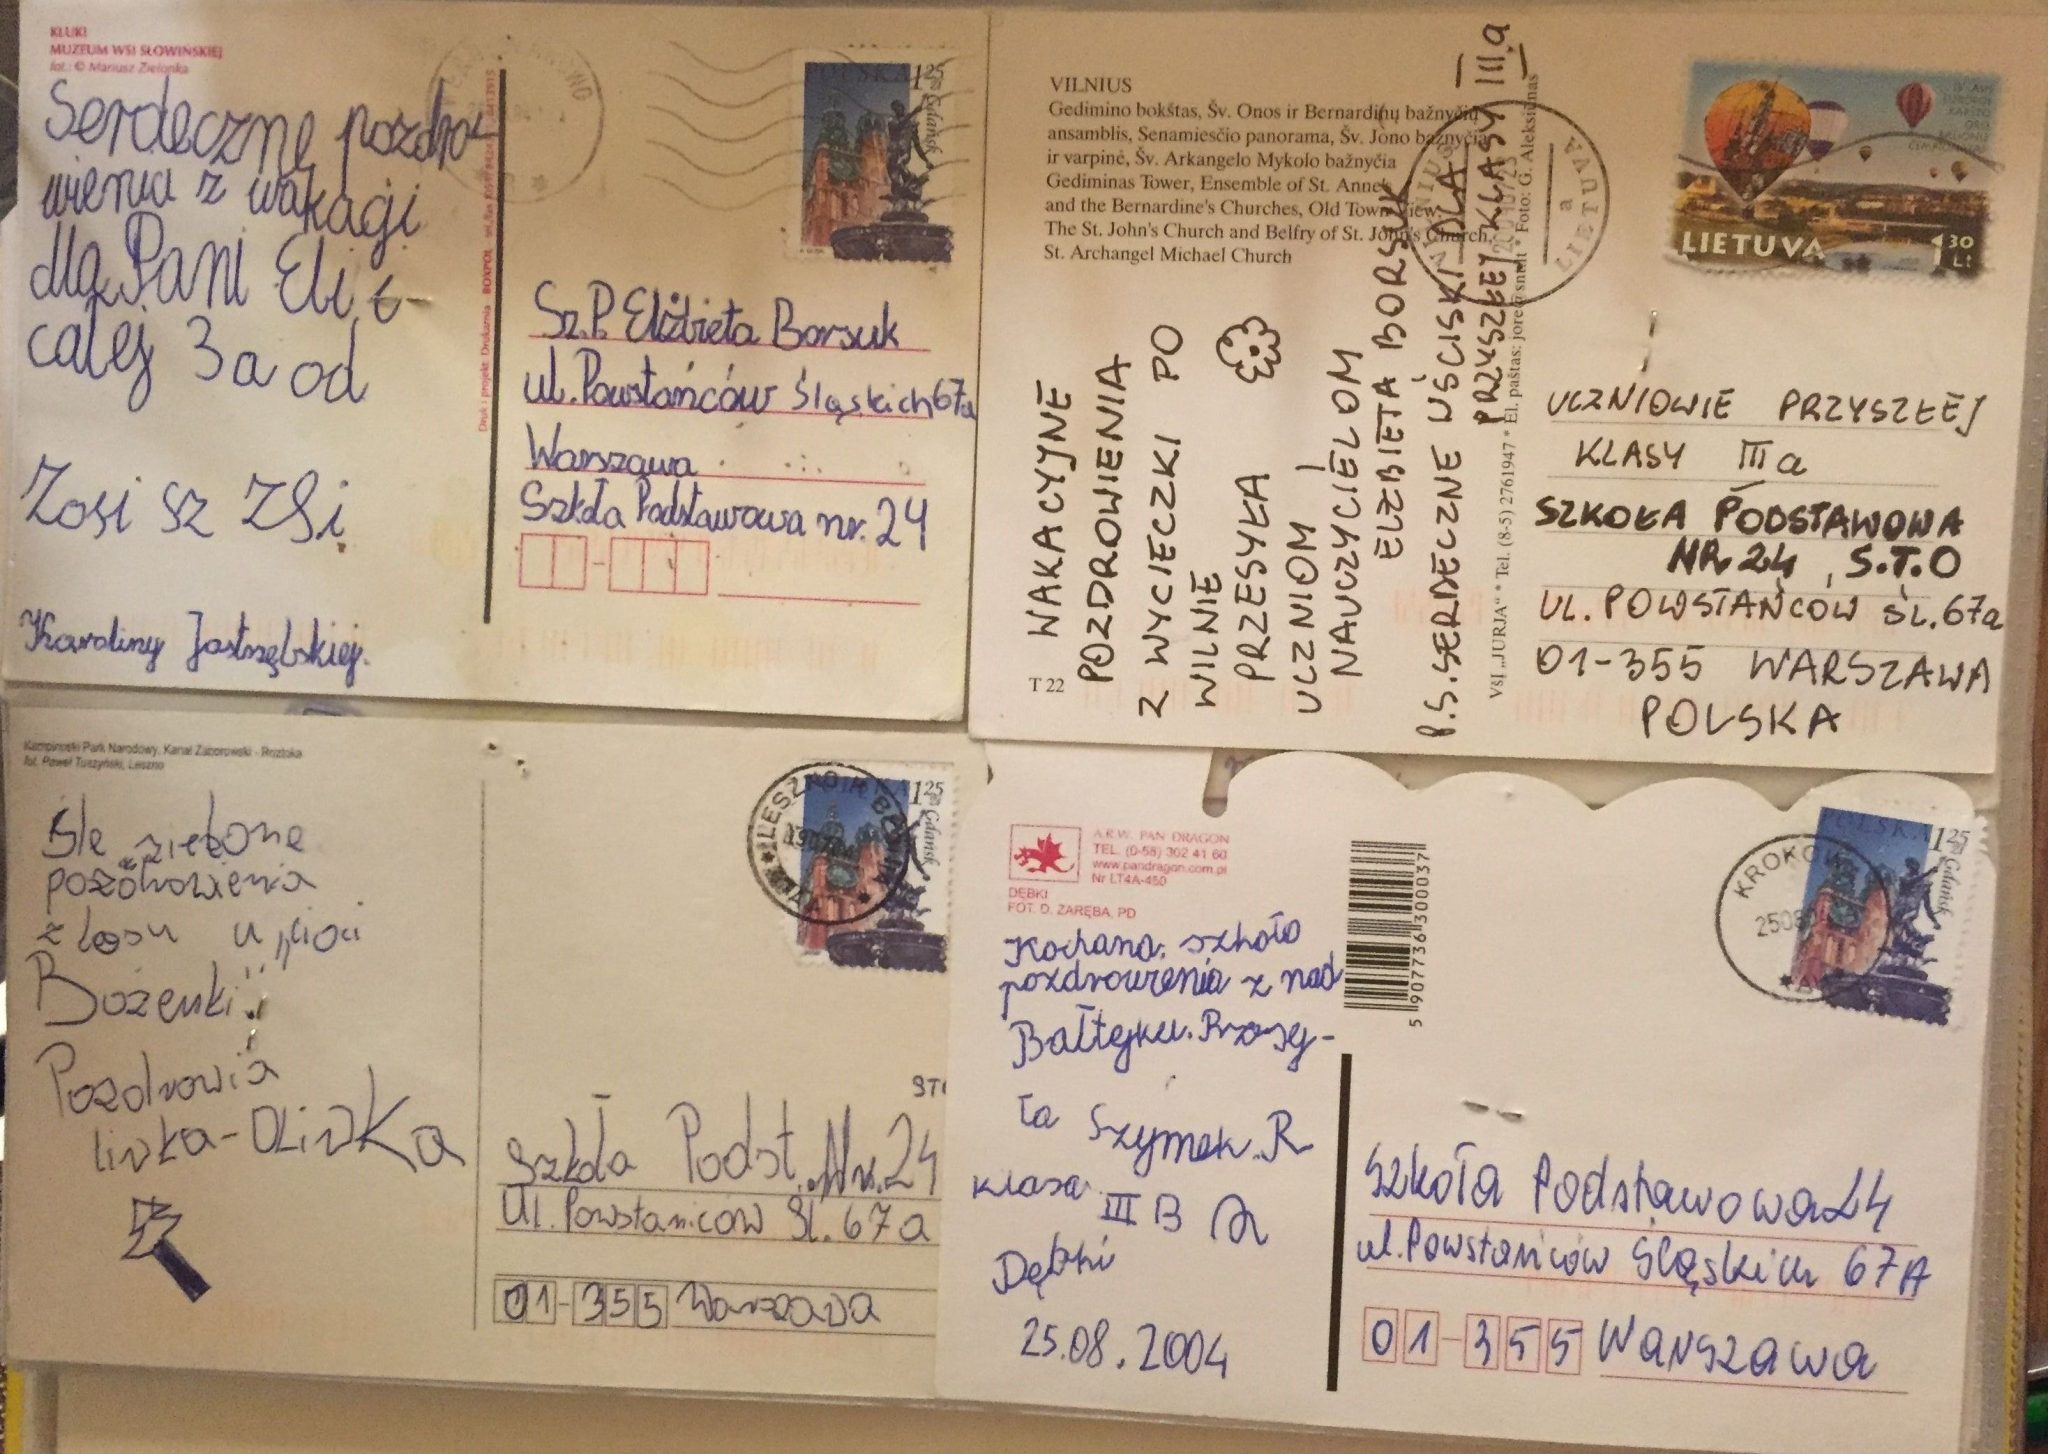 KLUKI
MUZEUM WSI SŁOWIŃSKIEJ
fot.: © Mariusz Zielonka
Serdeczne pozdro-
wienia z wakacji
dla Pani Eli i
całej 3a od
Zosi
Karoliny Jastrzębskiej.
Druk i projekt: Drukarnia BOXPOL
POLSKA 1 25
Gdańsk
Sz.P. Elżbieta Borsuk
ul. Powstańców Śląskich 67a
Warszawa
Szkoła Podstawowa nr. 24
VILNIUS
Gedimino bokštas, Šv. Onos ir Bernardinų bažnyčių
ansamblis, Senamiesčio panorama, Šv. Jono bažnyčia
ir varpinė, Šv. Arkangelo Mykolo bažnyčia
Gediminas Tower, Ensemble of St. Anne
and the Bernardine's Churches, Old Town View,
The St. John's Church and Belfry of St. John's Church,
St. Archangel Michael Church
WAKACYJNE
POZDROWIENIA
Z WYCIECZKI PO
WILNIE
PRZESYŁA
UCZNIOM I
NAUCZYCIELOM
ELŻBIETA BORSUK
P.S. SERDECZNE UŚCISKI DLA
PRZYSZŁEJ KLASY III a
T 22
VšĮ „JURJA“ * Tel. (8-5) 2761947 * El. paštas: * Foto: G. Aleksiūnas
VILNIUS
a
LIETUVA
LIETUVA 1 30
Lt
UCZNIOWIE PRZYSZŁEJ
KLASY III a
SZKOŁA PODSTAWOWA
NR 24, S.T.O
UL. POWSTAŃCÓW ŚL. 67a
01-355 WARSZAWA
POLSKA
Kampinoski Park Narodowy, Kanał Zaborowski - Roztoka
fot. Paweł Tuszyński, Leszno
Śle zielone
pozdrowienia
z lasu u „cioci
Bożenki"
Pozdrowia
linka-OLINKA
1 25
Gdańsk
STO
Szkoła Podst. Nr. 24
Ul. Powstańców Śl. 67a
01-355 Warszawa
A.R.W. PAN DRAGON
TEL. (0-58) 302 41 60
www.pandragon.com.pl
Nr LT4A-450
DĘBKI
FOT. D. ZARĘBA, PD
Kochana szkoło
pozdrowienia z nad
Bałtyku. Przesy-
ła Szymek. R
klasa III B
Dębki
25.08.2004
5 907736 300037
KROKOWA
POLSKA 1 25
Gdańsk
Szkoła Podstawowa 24
ul. Powstańców Śląskich 67A
01-355 Warszawa